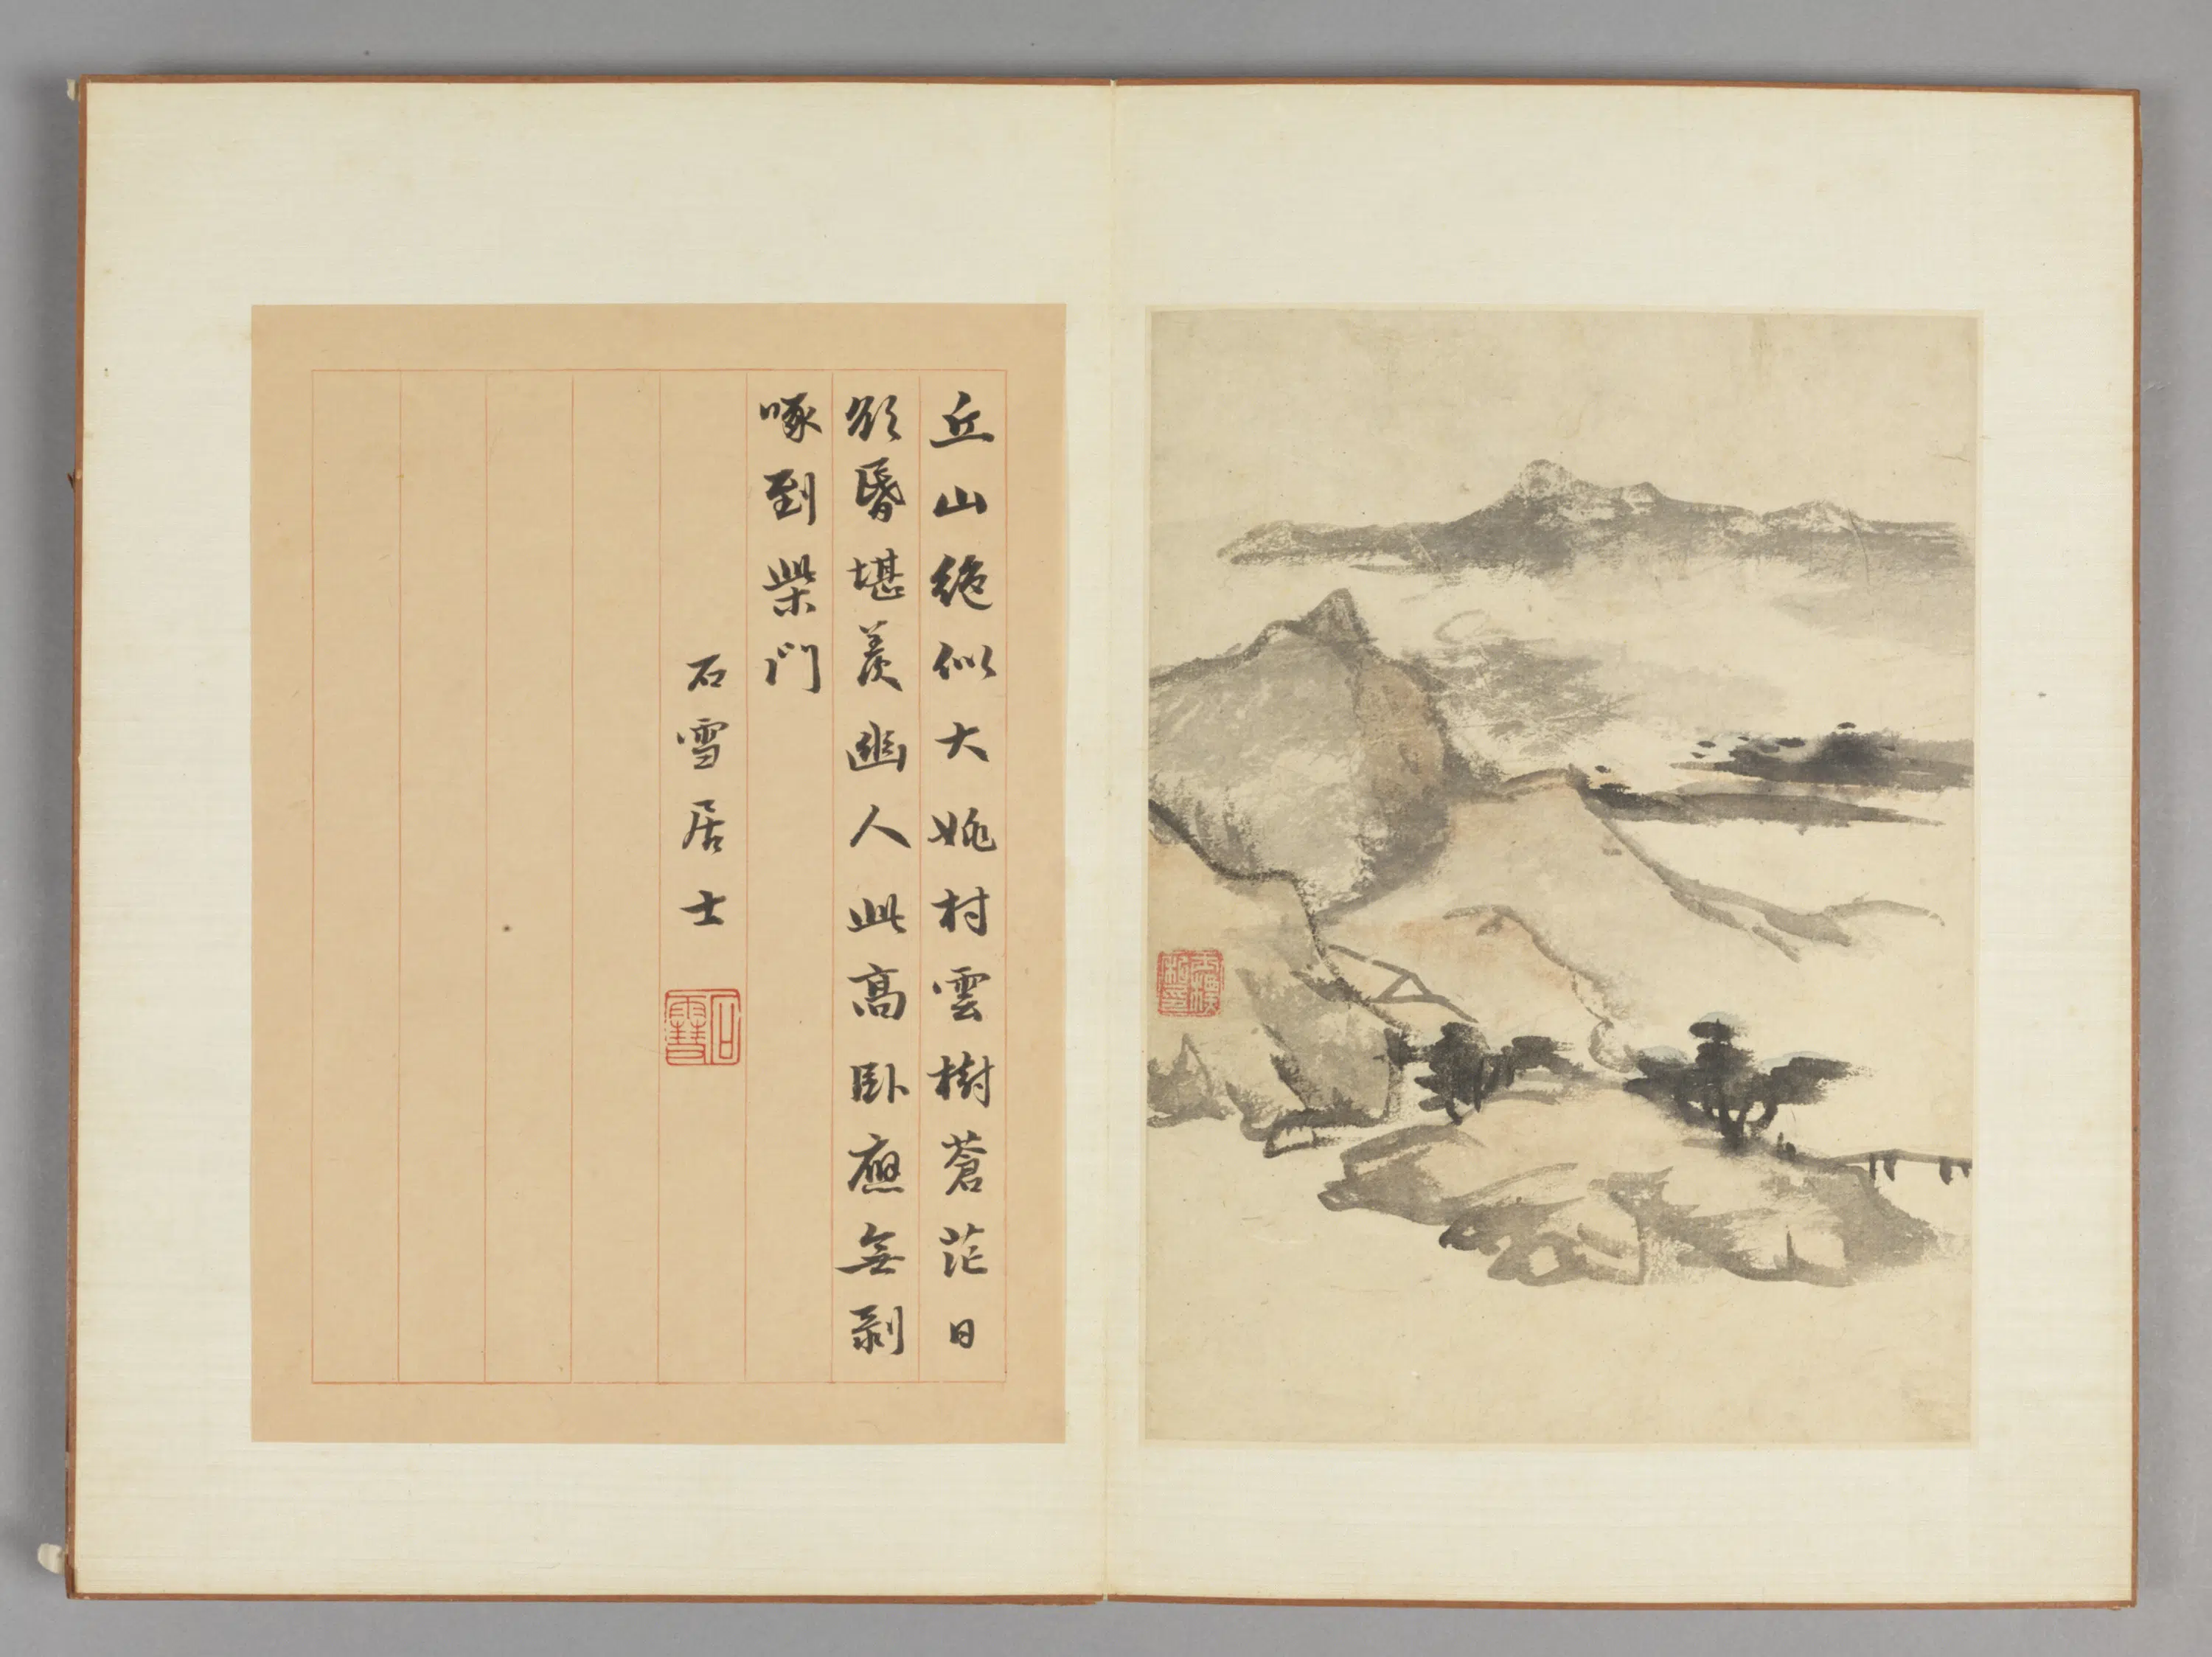 丘山絶似大姚村雲樹蒼茫日
欲昏堪羨幽人此高卧應無剥
啄到柴門
石雪居士
石雪